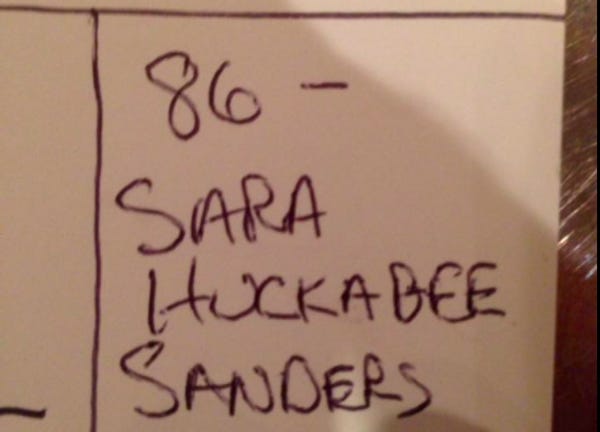 86 -
SARA
HUCKABEE
SANDERS